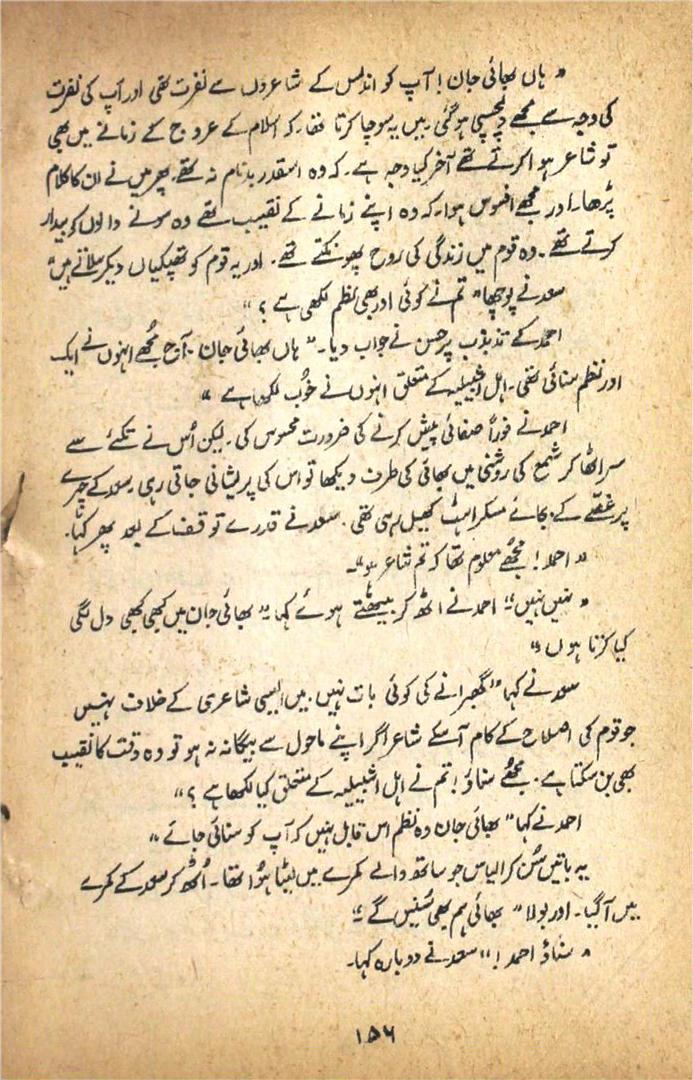 " ہاں بھائی جان! آپ کو اندلس کے شاعروں سے نفرت تھی اور آپ کی نفرت
کی وجہ سے مجھے دلچسپی ہو گئی میں یہ سوچا کرتا تھا۔ کہ اسلام کے عروج کے زمانے میں بھی
تو شاعر ہوا کرتے تھے آخر کیا وجہ ہے۔ کہ وہ اسقدر بدنام نہ تھے۔ پھر میں نے ان کا کلام
پڑھا۔ اور مجھے افسوس ہوا۔ کہ وہ اپنے زمانے کے نقیب تھے وہ سونے والوں کو بیدار
کرتے تھے۔ وہ قوم میں زندگی کی روح پھونکتے تھے۔ اور یہ قوم کو تھپکیاں دیکر سلاتے ہیں"
سعد نے پوچھا " تم نے کوئی اور بھی نظم لکھی ہے ؟ "
احمد کے تذبذب پر حسن نے جواب دیا۔ " ہاں بھائی جان۔ آج مجھے انہوں نے ایک
اور نظم سنائی تھی۔ اہل اشبیلیہ کے متعلق انہوں نے خوب لکھا ہے "
احمد نے فوراً صفائی پیش کرنے کی ضرورت محسوس کی۔ لیکن اُس نے تکئے سے
سر اٹھا کر شمع کی روشنی میں بھائی کی طرف دیکھا تو اس کی پریشانی جاتی رہی۔ سعد کے چہرے
پر غصّے کے بجائے مسکراہٹ کھیل رہی تھی۔ سعد نے قدرے توقف کے بعد پھر کہا۔
" احمد! مجھے معلوم تھا کہ تم شاعر ہو "۔
" نہیں نہیں" احمد نے اٹھ کر بیٹھتے ہوئے کہا " بھائی جان میں کبھی کبھی دل لگی
کیا کرتا ہوں "
سعد نے کہا " گھبرانے کی کوئی بات نہیں۔ میں ایسی شاعری کے خلاف نہیں
جو قوم کی اصلاح کے کام آ سکے شاعر اگر اپنے ماحول سے بیگانہ نہ ہو تو وہ وقت کا نقیب
بھی بن سکتا ہے۔ مجھے سناؤ! تم نے اہل اشبیلیہ کے متعلق کیا لکھا ہے ؟ "
احمد نے کہا " بھائی جان وہ نظم اس قابل نہیں کہ آپ کو سنائی جائے "
یہ باتیں سُن کر الیاس جو ساتھ والے کمرے میں لیٹا ہوُا تھا۔ اُٹھ کر سعد کے کمرے
میں آگیا۔ اور بولا " بھائی ہم بھی سُنیں گے "
" سناؤ احمد! " سعد نے دوبارہ کہا۔
۱۵۶